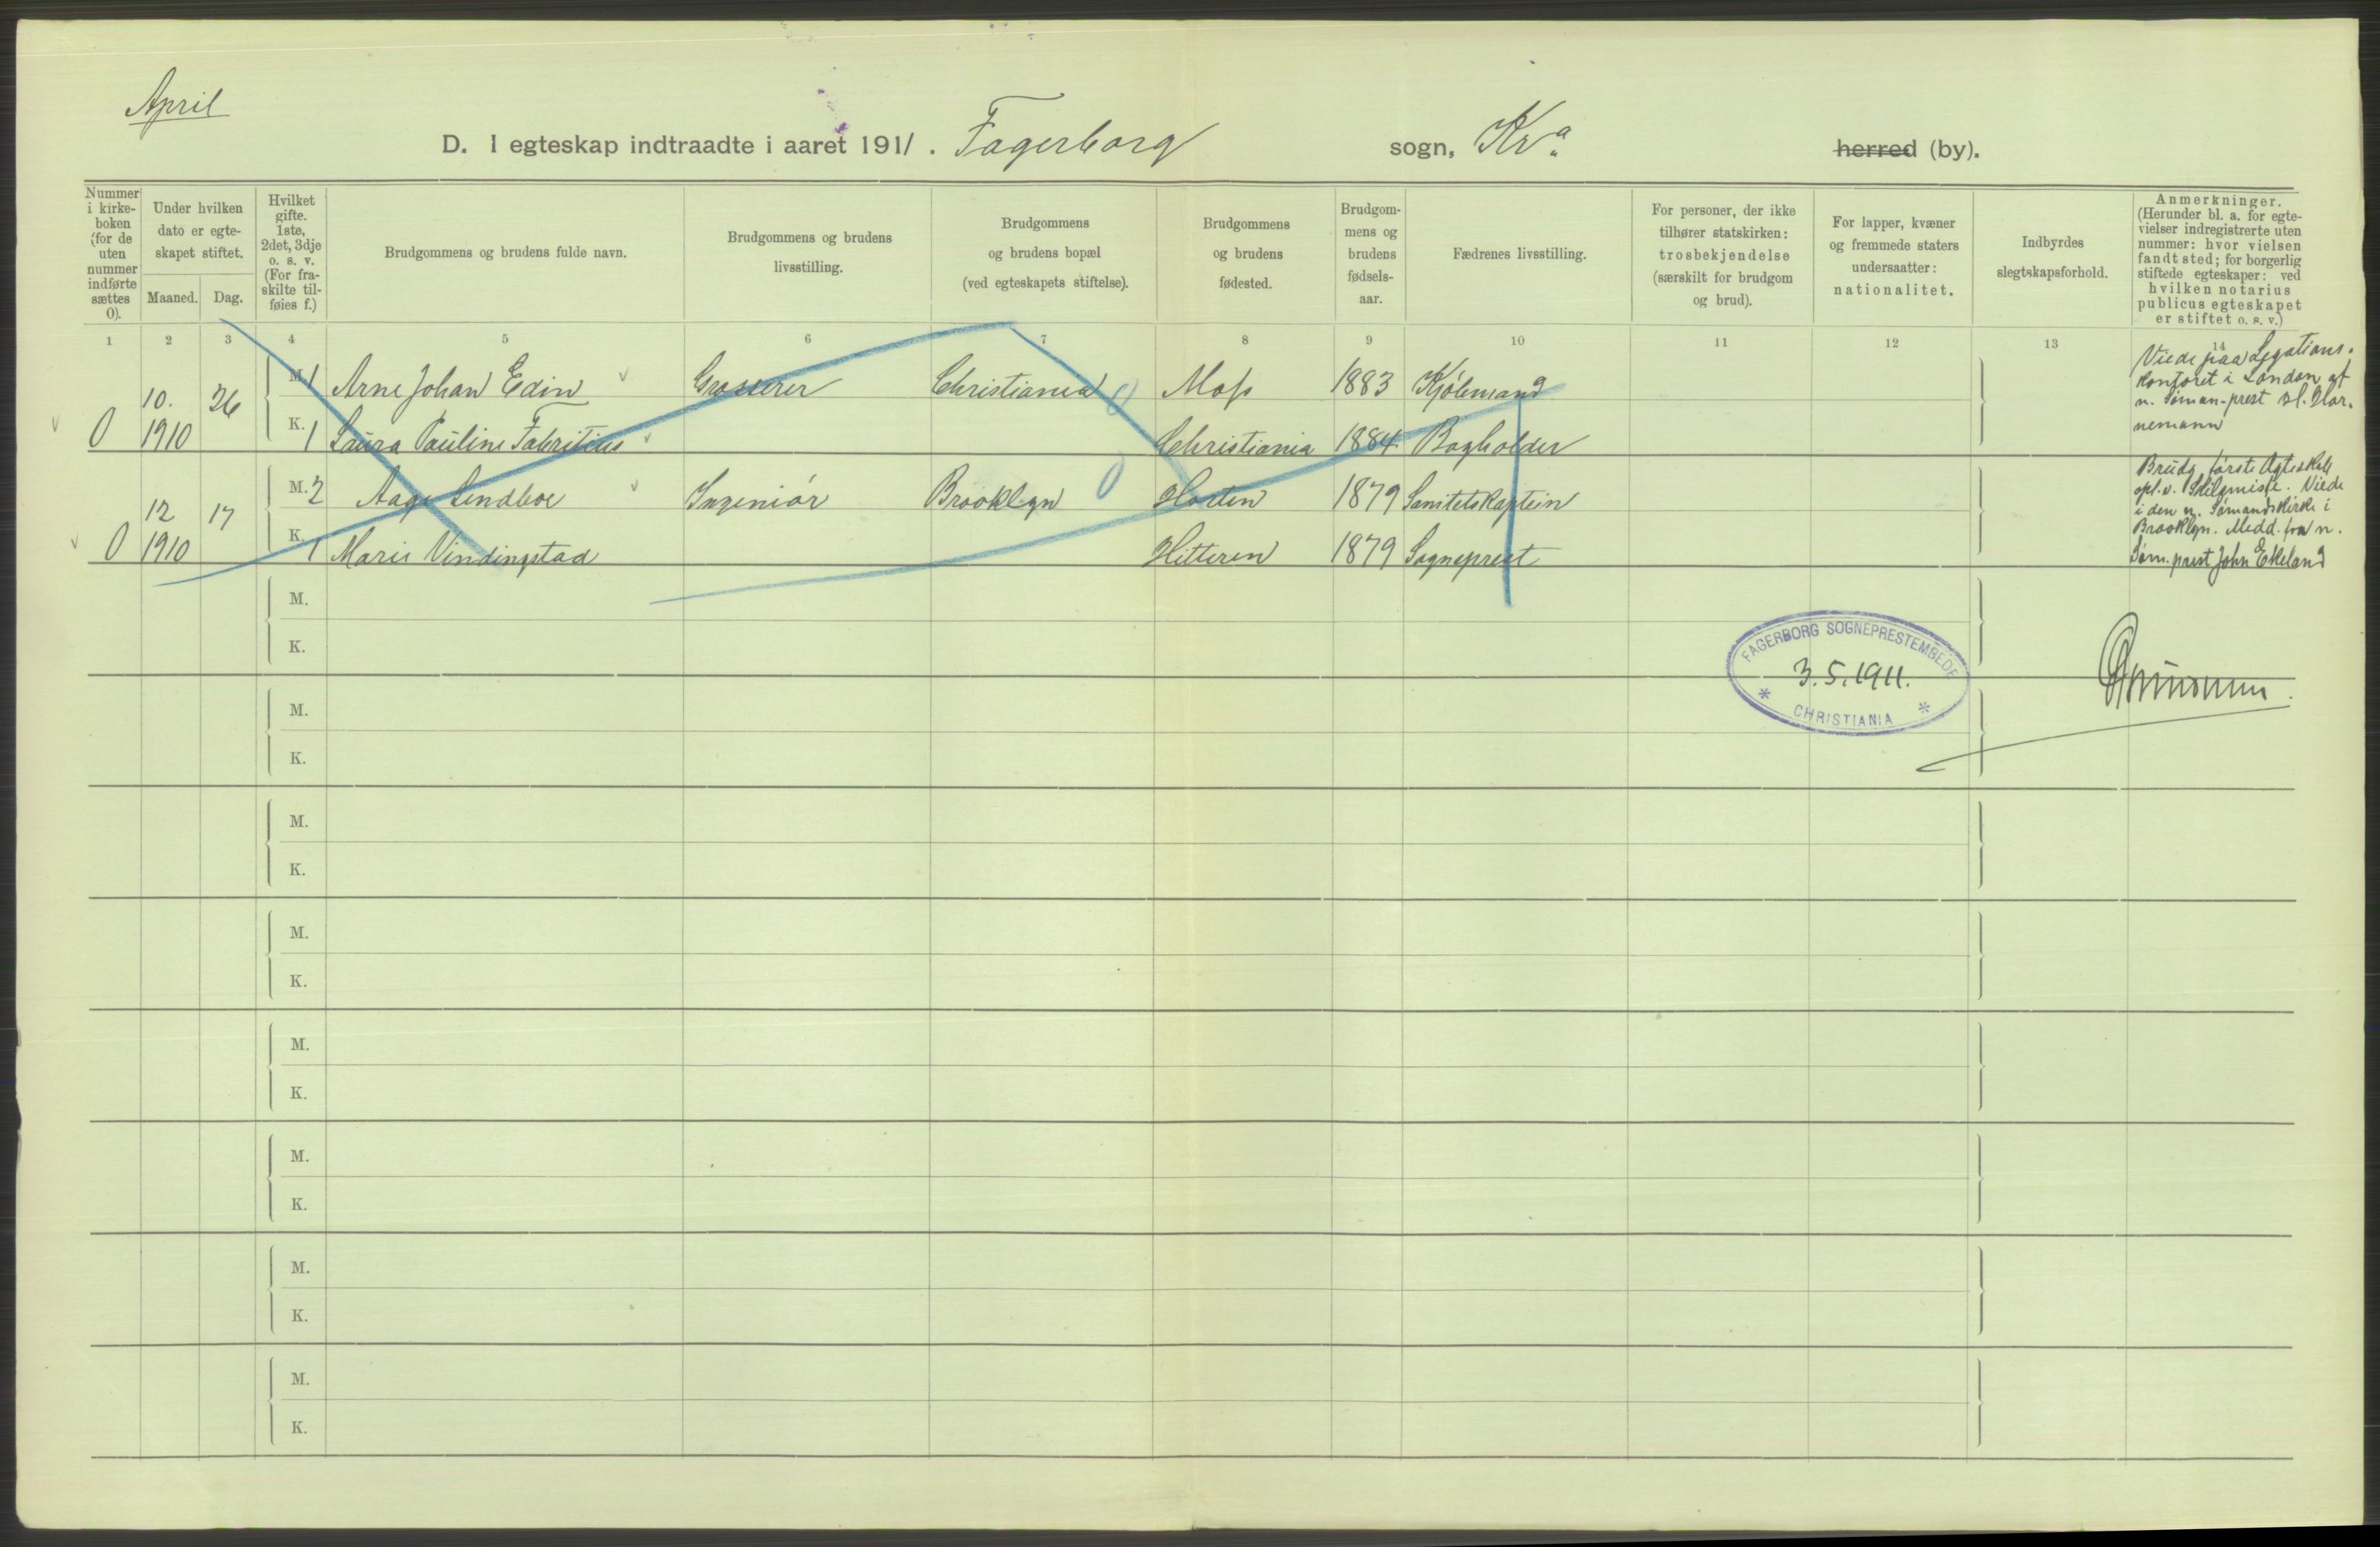 April
D. I egteskap indtraadte i aaret 1911. Fagerborg sogn, Kr.a herred (by).
Nummer i kirke-boken (for de uten nummer indførte sættes 0).
Under hvilken dato er egte-skapet stiftet.
Maaned. Dag.
Hvilket gifte. 1ste, 2det, 3dje o. s. v. (For fra-skilte til-føies f.)
Brudgommens og brudens fulde navn.
Brudgommens og brudens livsstilling.
Brudgommens og brudens bopæl (ved egteskapets stiftelse).
Brudgommens og brudens fødested.
Brudgom-mens og brudens fødsels-aar.
Fædrenes livsstilling.
For personer, der ikke tilhører statskirken: trosbekjendelse (særskilt for brudgom og brud).
For lapper, kvæner og fremmede staters undersaatter: nationalitet.
Indbyrdes slegtskapsforhold.
Anmerkninger. (Herunder bl. a. for egte-vielser indregistrerte uten nummer: hvor vielsen fandt sted; for borgerlig stiftede egteskaper: ved hvilken notarius publicus egteskapet er stiftet o. s. v.)
1 2 3 4 5 6 7 8 9 10 11 12 13 14
10. 26 M. 1 Arne Johan Edin Grosserer Christiania 0 Moss 1883 Kjøbmand
0 1910 K. 1 Laura Pauline Fabritius Christiania 1884 Bogholder
Viede paa Legations-
kontoret i London af
n. Søman-prest
nemann
12 17 M. 2 Aage Lendboe Ingeniør Brooklyn 0 Horten 1879 Sanitetskaptein
0 1910 K. 1 Marie Vindingstad Hitteren 1879 Sogneprest
Brudg. første Ægteskab
opl. v. Skilsmisse. Viede
i den n. Sømandskirke i
Brooklyn. Medd. fra n.
Søm. prest John Ekeland
M.
K.
FAGERBORG SOGNEPRESTEMBEDE
3.5.1911.
* CHRISTIANIA *
M.
K.
M.
K.
M.
K.
M.
K.
M.
K.
M.
K.
M.
K.